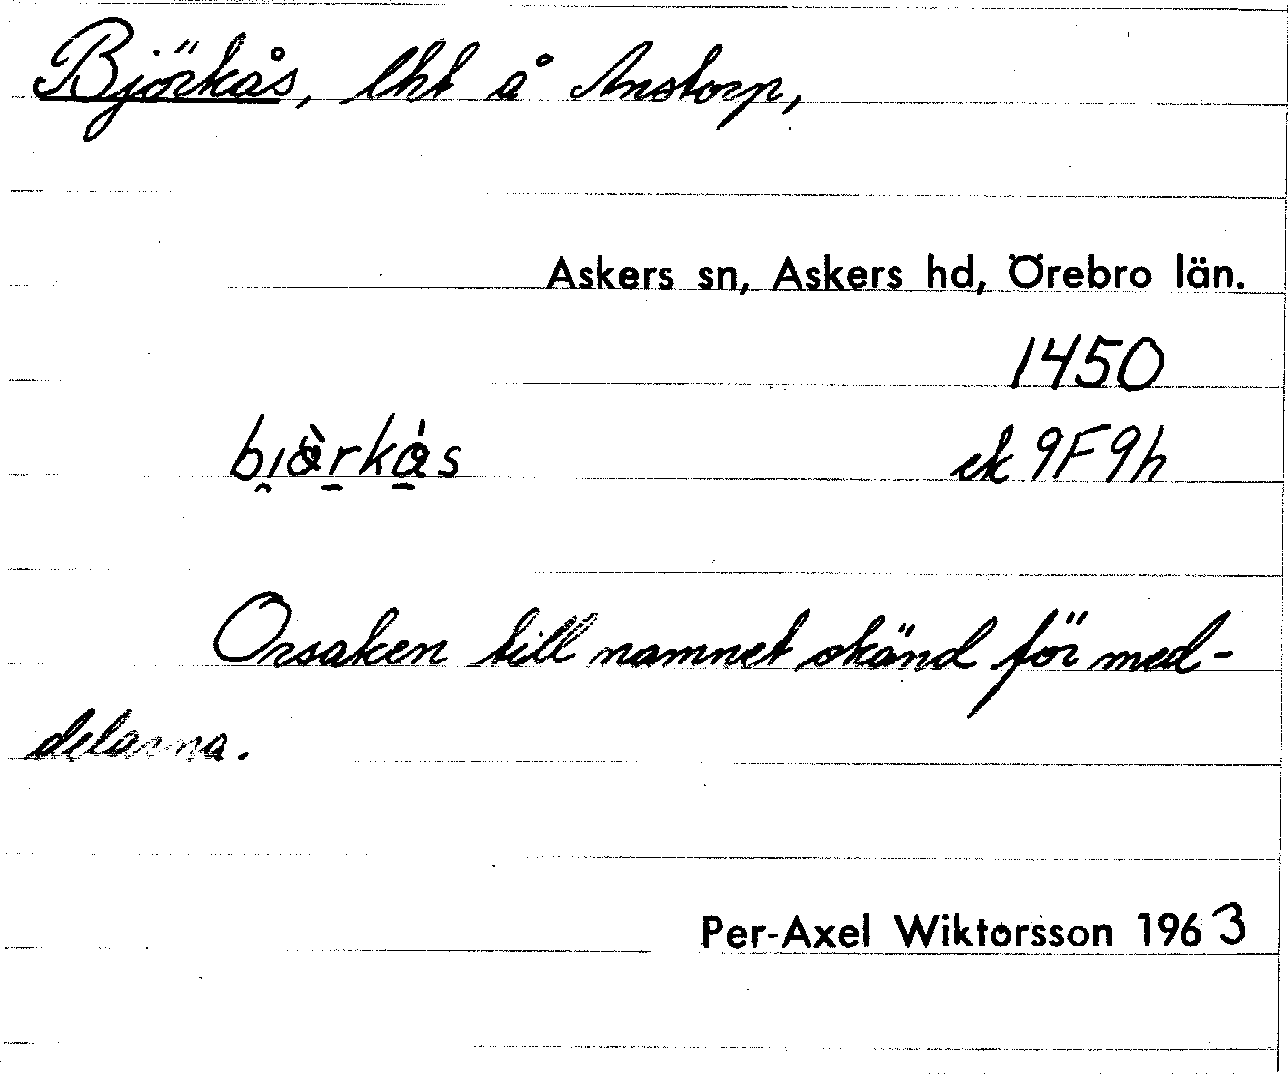 Björkås, lht å Anstorp,
Askers sn, Askers hd, Örebro län.
1450
ek 9F9h
Orsaken till namnet okänd för med-
delarna.
Per-Axel Wiktorsson 1963